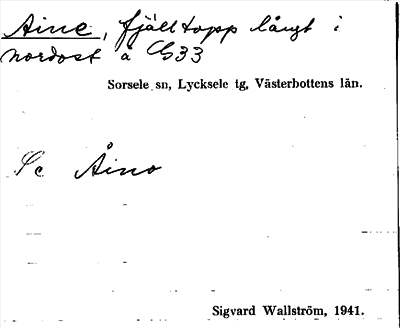 Aine, fjälltopp långt i
nordost å G33
Sorsele sn, Lycksele tg, Västerbottens län.
Se Åino
Sigvard Wallström, 1941.